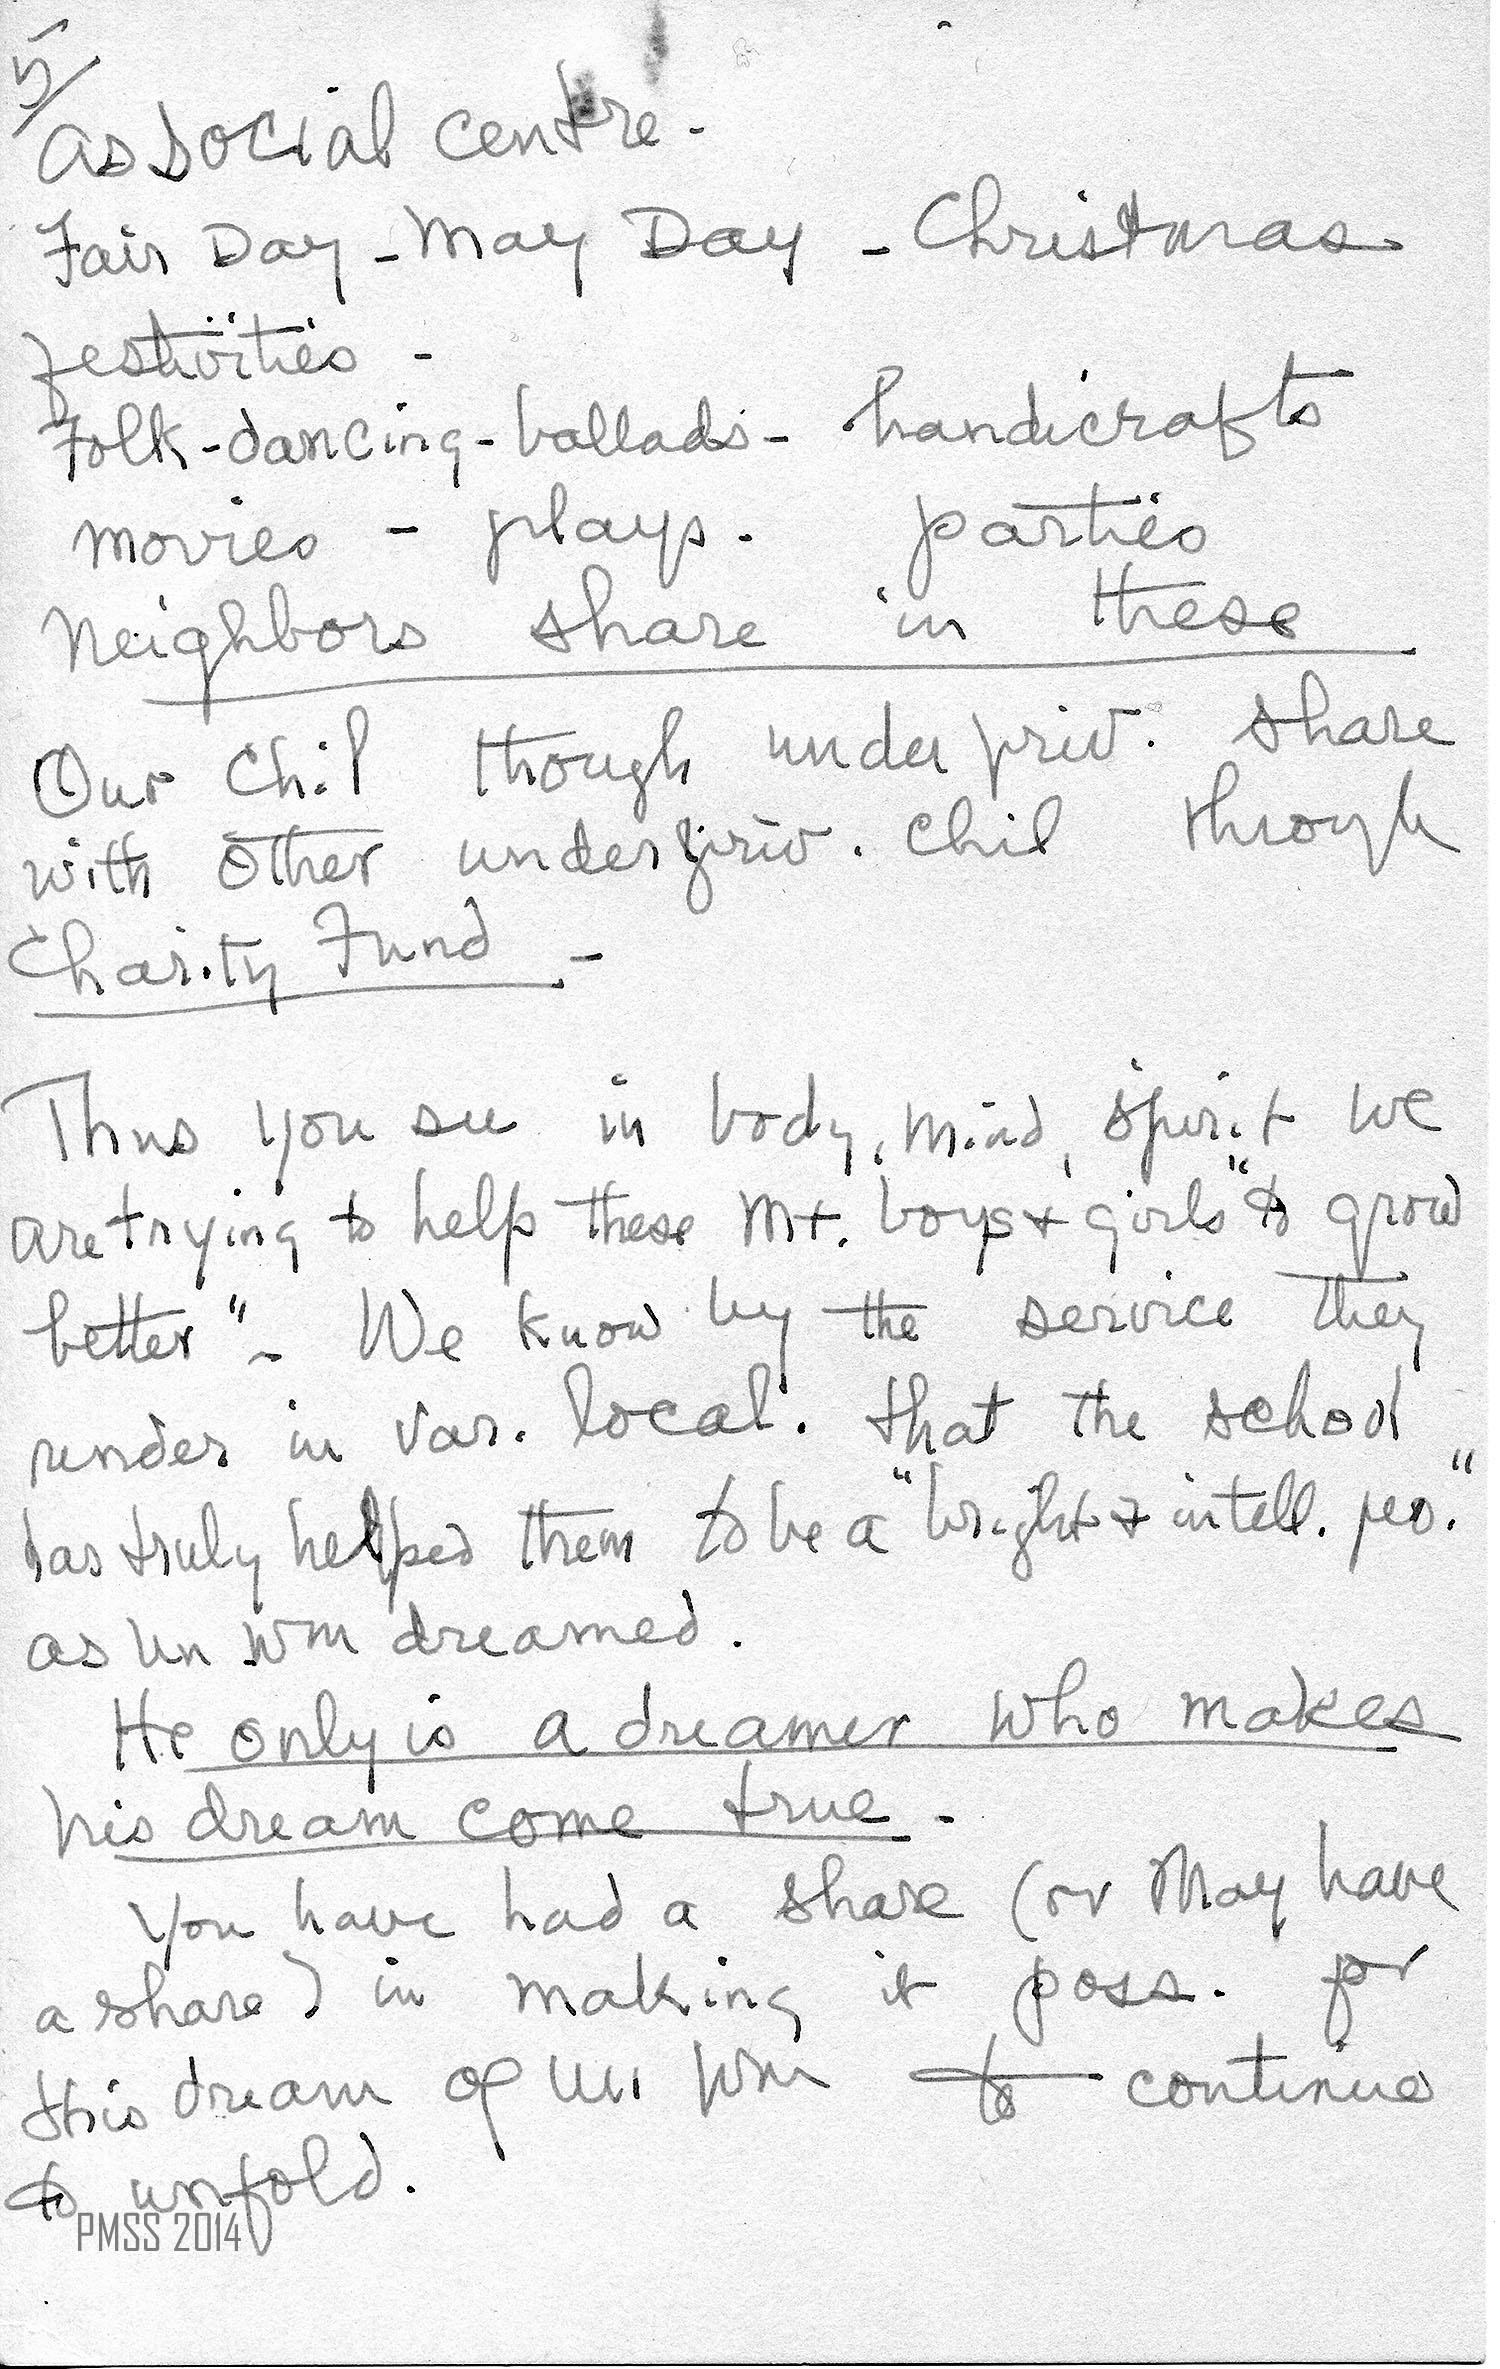 5/
as social centre -
Fair Day - May Day - Christmas
festivities -
Folk-dancing - ballads - handicrafts
movies - plays - parties
Neighbors share in these
Our chil though underpriv. share
with other underpriv. chil through
Charity Fund -
Thus you see in body, mind, spirit we
are trying to help these Mt. boys + girls "to grow
better" - We know by the service they
render in var. local. that the school
has truly helped them to be a "bright + intell. peo."
as Un Wm dreamed.
He only is a dreamer who makes
his dream come true -
You have had a share (or may have
a share) in making it poss. for
this dream of Un Wm to continue
to unfold.
PMSS 2014